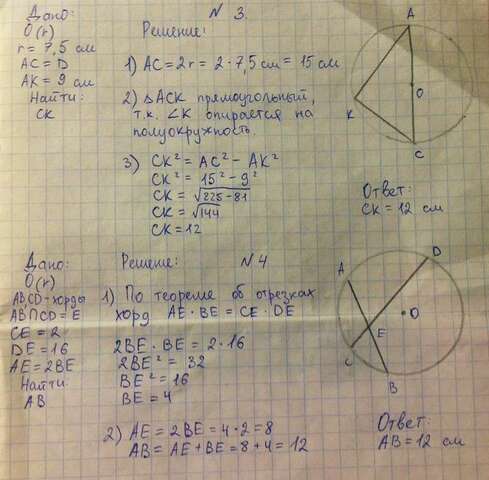 Дано:
О(r)
r = 7,5 см
AC = D
AK = 9 см
Найти:
CK
N 3.
Решение:
1) AC = 2r = 2 · 7,5 см = 15 см
2) △ACK прямоугольный,
т.к. ∠K опирается на
полуокружность.
3) CK² = AC² − AK²
CK² = 15² − 9²
CK = √225 − 81
CK = √144
CK = 12
Ответ:
CK = 12 см
A
O
K
C
Дано:
О(r)
AB,CD - хорды
AB∩CD = E
CE = 2
DE = 16
AE = 2BE
Найти
AB
Решение:
N 4
1) По теореме об отрезках
хорд AE · BE = CE · DE
2BE · BE = 2 · 16
2BE² = 32
BE² = 16
BE = 4
2) AE = 2BE = 4 · 2 = 8
AB = AE + BE = 8 + 4 = 12
Ответ:
AB = 12 см
D
A
O
E
C
B